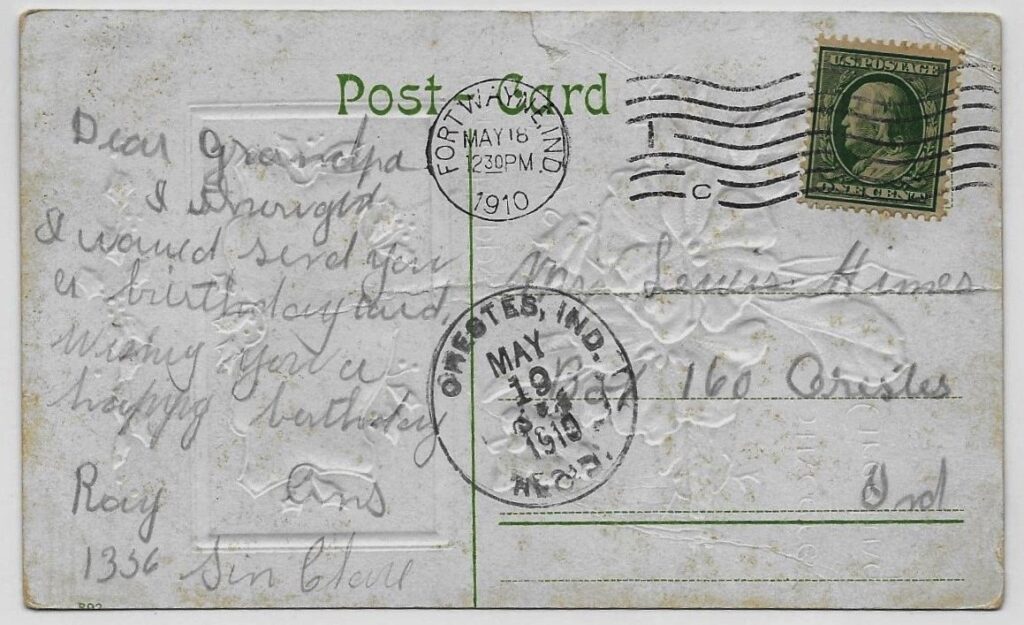 Post Card
FORT WAYNE, IND.
MAY 18
12 30 PM
1910
C
U.S. POSTAGE
ONE CENT
Dear Grandpa
I
I would send you
a birthday card,
Wishing you a
happy birthday
Ray
1336 Sin Clair
Lewis Himes
160 Orestes
Ind
ORESTES, IND.
MAY
19
1910
REC'D.